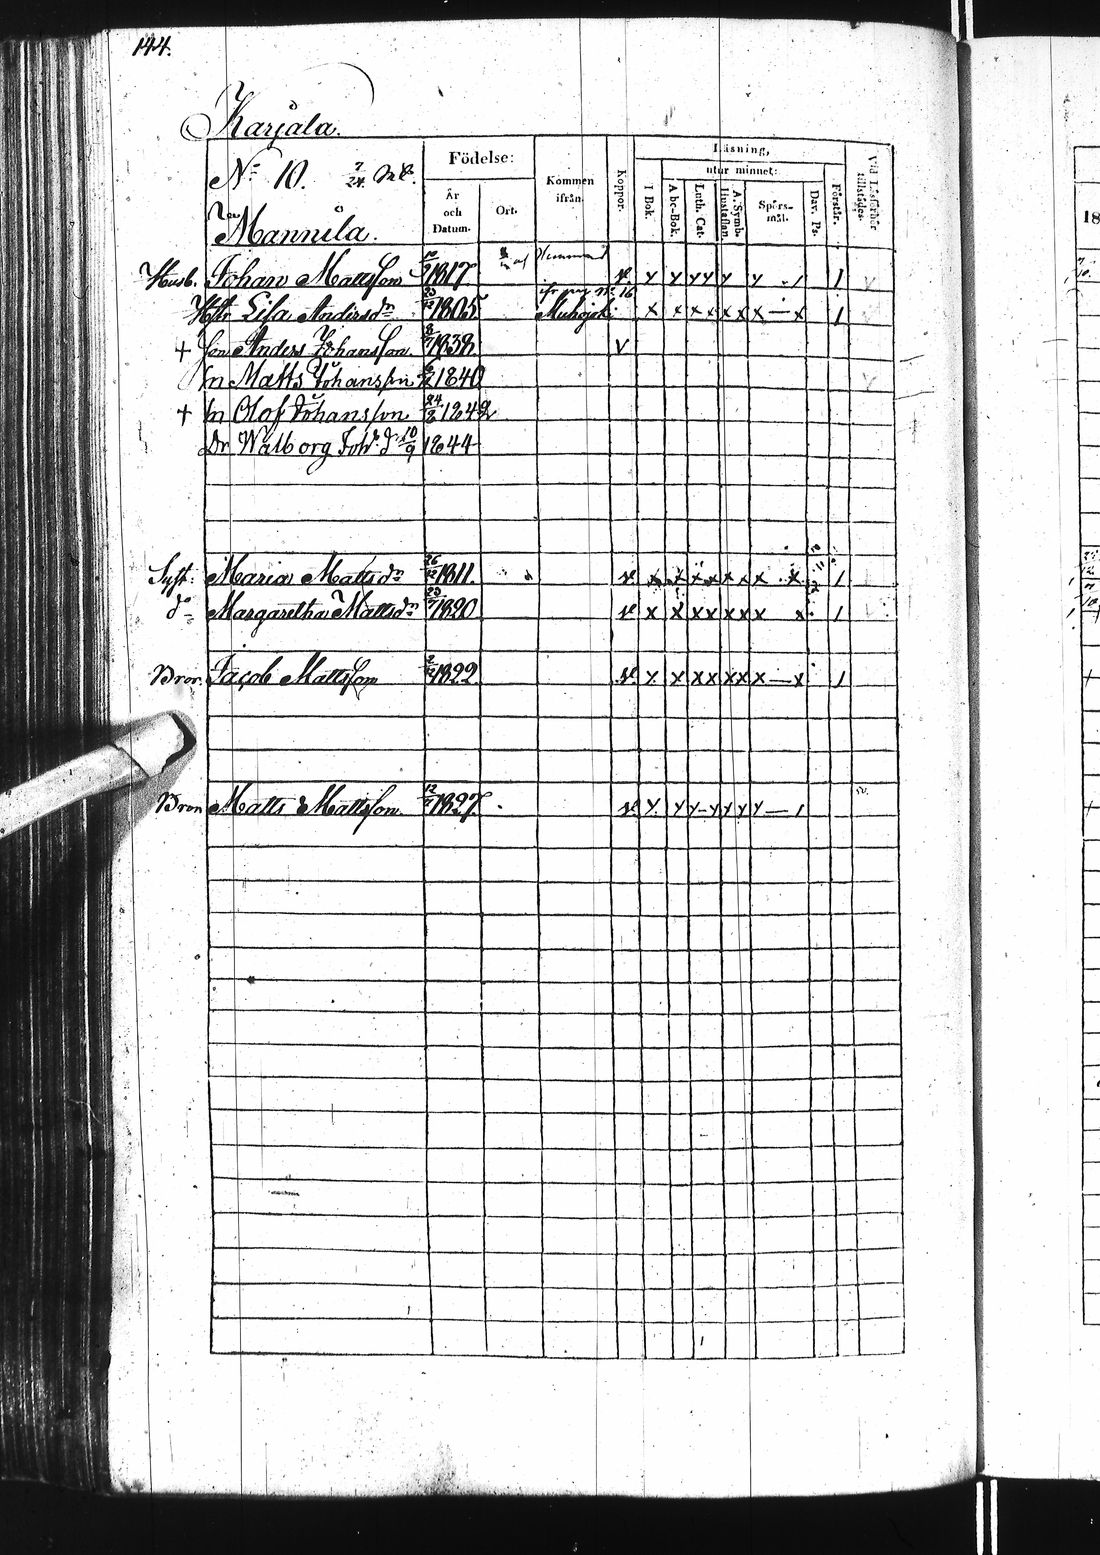 144.
Karjala.
N° 10. 7/24 Mt.
Mannila.
Födelse:
År och Datum.
Ort.
Kommen ifrån.
Koppor.
Läsning,
utur minnet:
I Bok.
Abc-Bok.
Luth. Cat.
A. Symb. Hustaflan
Spörs-mål.
Dav. Ps.
Förstår.
Vid Läsförhör tillstädes.
Husb. Johan Mattsson 1817 v. 1
ifr N° 16
Hstr Lisa Andersdr 23/12 1805 x x x x x x x — x 1
+ Son Anders Johansson 1838 v
Sn Matts Johansson 1840
+ Sn Olof Johansson 24/8 1842
Dr Walborg Joh. d. 10/9 1844
Syst: Maria Mattsdn 26/12 1811 v. x x x x x x x x 1
do Margaretha Mattsdn 20/7 1820 v x x x x x x x x 1
Bror. Jacob Mattsson 1822 v. x x x x x x x — x 1
Bron Matts Mattsson 12/2 1827. v.
18